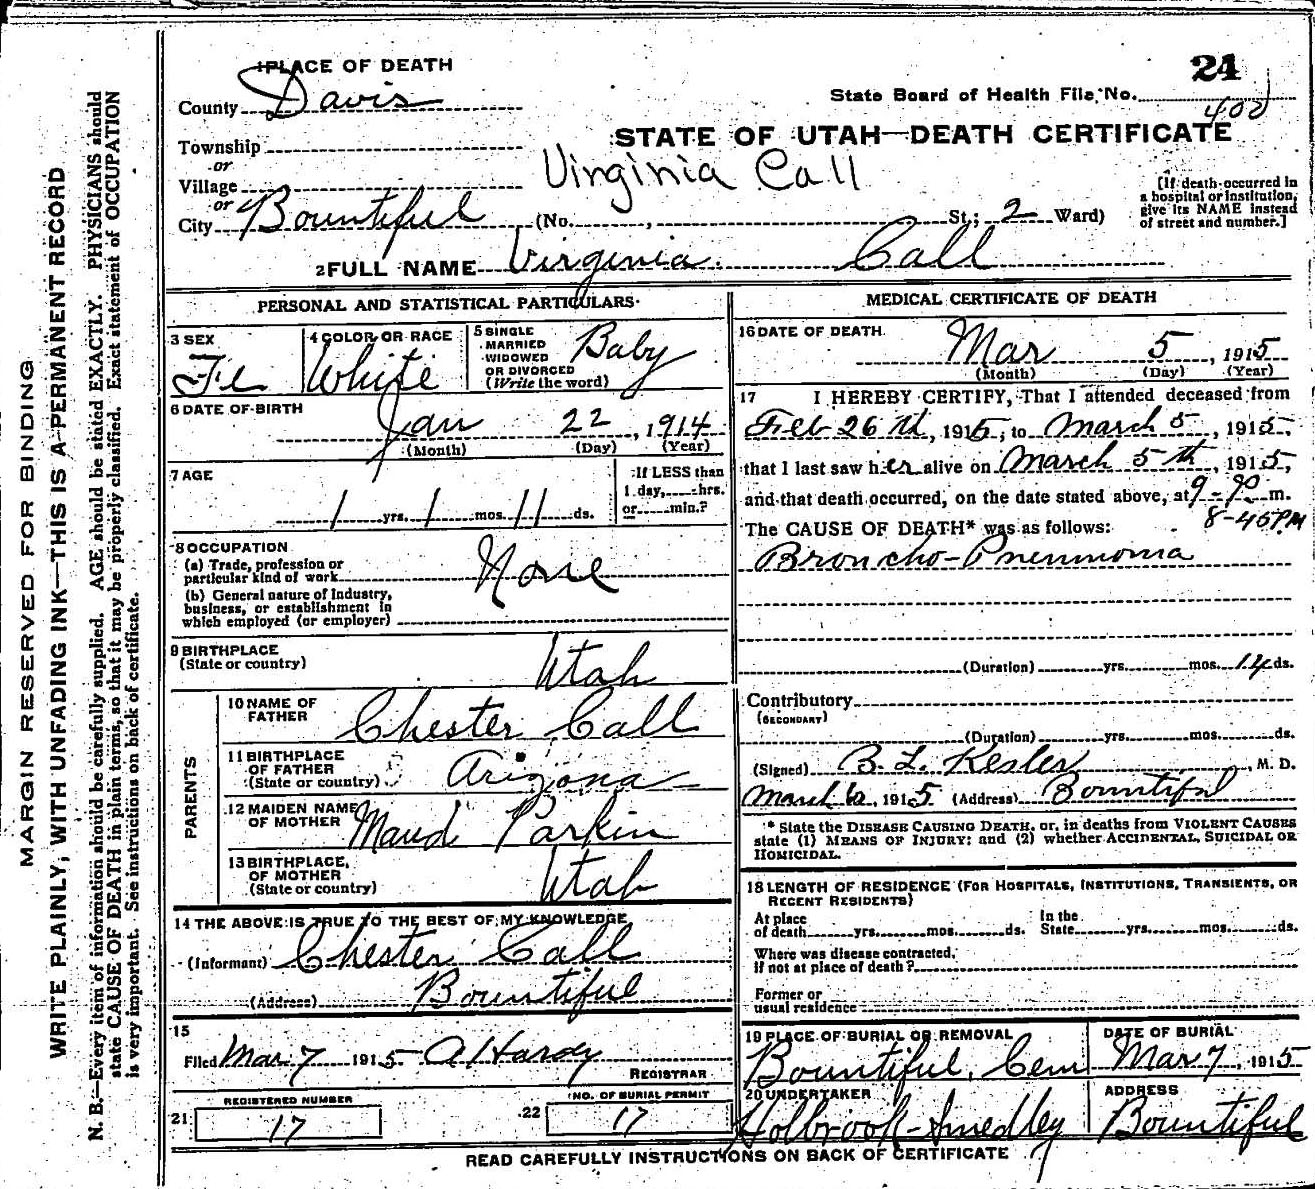 24
1 PLACE OF DEATH
County Davis
State Board of Health File No.
400
STATE OF UTAH—DEATH CERTIFICATE
Township
or
Village
or
City Bountiful (No. , St.; 2 Ward)
Virginia Call
[If death occurred in a hospital or institution, give its NAME instead of street and number.]
2 FULL NAME Virginia Call
PERSONAL AND STATISTICAL PARTICULARS
3 SEX
Fe
4 COLOR OR RACE
White
5 SINGLE
MARRIED
WIDOWED
OR DIVORCED
(Write the word)
Baby
6 DATE OF BIRTH
Jan 22, 1914
(Month) (Day) (Year)
7 AGE
1 yrs. 1 mos. 11 ds.
If LESS than
1 day, hrs.
or min.?
8 OCCUPATION
(a) Trade, profession or
particular kind of work
None
(b) General nature of Industry,
business, or establishment in
which employed (or employer)
9 BIRTHPLACE
(State or country)
Utah
PARENTS
10 NAME OF
FATHER
Chester Call
11 BIRTHPLACE
OF FATHER
(State or country)
Arizona
12 MAIDEN NAME
OF MOTHER
Maud Parkin
13 BIRTHPLACE,
OF MOTHER
(State or country)
Utah
14 THE ABOVE IS TRUE TO THE BEST OF MY KNOWLEDGE
(Informant) Chester Call
(Address) Bountiful
15
Filed Mar 7 1915 A Hardy
REGISTRAR
REGISTERED NUMBER
21 17
NO. OF BURIAL PERMIT
22 17
MEDICAL CERTIFICATE OF DEATH
16 DATE OF DEATH
Mar 5, 1915
(Month) (Day) (Year)
17 I HEREBY CERTIFY, That I attended deceased from
Feb 26th, 1915, to March 5, 1915,
that I last saw her alive on March 5th, 1915,
and that death occurred, on the date stated above, at m.
8-45 PM
The CAUSE OF DEATH* was as follows:
Broncho-Pneumonia
(Duration) yrs. mos. 14 ds.
Contributory
(SECONDARY)
(Duration) yrs. mos. ds.
(Signed) B. L. Kesler, M. D.
March 6, 1915 (Address) Bountiful
* State the DISEASE CAUSING DEATH, or, in deaths from VIOLENT CAUSES
state (1) MEANS OF INJURY; and (2) whether ACCIDENTAL, SUICIDAL OR
HOMICIDAL.
18 LENGTH OF RESIDENCE (FOR HOSPITALS, INSTITUTIONS, TRANSIENTS, OR
RECENT RESIDENTS)
At place
of death yrs. mos. ds.
In the
State yrs. mos. ds.
Where was disease contracted,
If not at place of death?
Former or
usual residence
19 PLACE OF BURIAL OR REMOVAL
Bountiful, Cem
DATE OF BURIAL
Mar 7, 1915
20 UNDERTAKER
Holbrook-Smedley
ADDRESS
Bountiful
READ CAREFULLY INSTRUCTIONS ON BACK OF CERTIFICATE
MARGIN RESERVED FOR BINDING
WRITE PLAINLY, WITH UNFADING INK—THIS IS A PERMANENT RECORD
N. B.—Every item of information should be carefully supplied. AGE should be stated EXACTLY. PHYSICIANS should
state CAUSE OF DEATH in plain terms, so that it may be properly classified. Exact statement of OCCUPATION
is very important. See instructions on back of certificate.